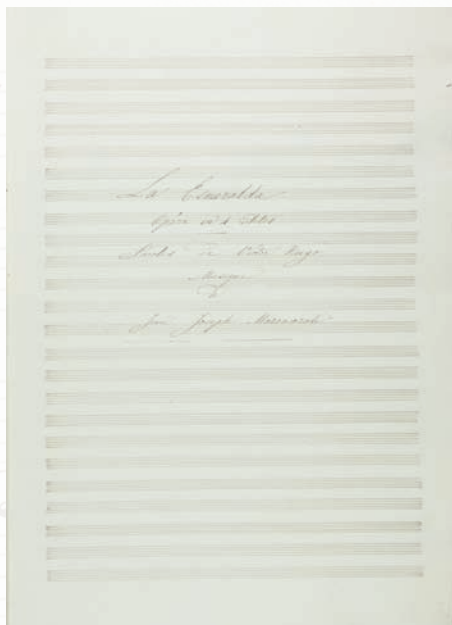 La Esmeralda
Opéra en 4 Actes
Paroles de Victor Hugo
Musique
Joseph